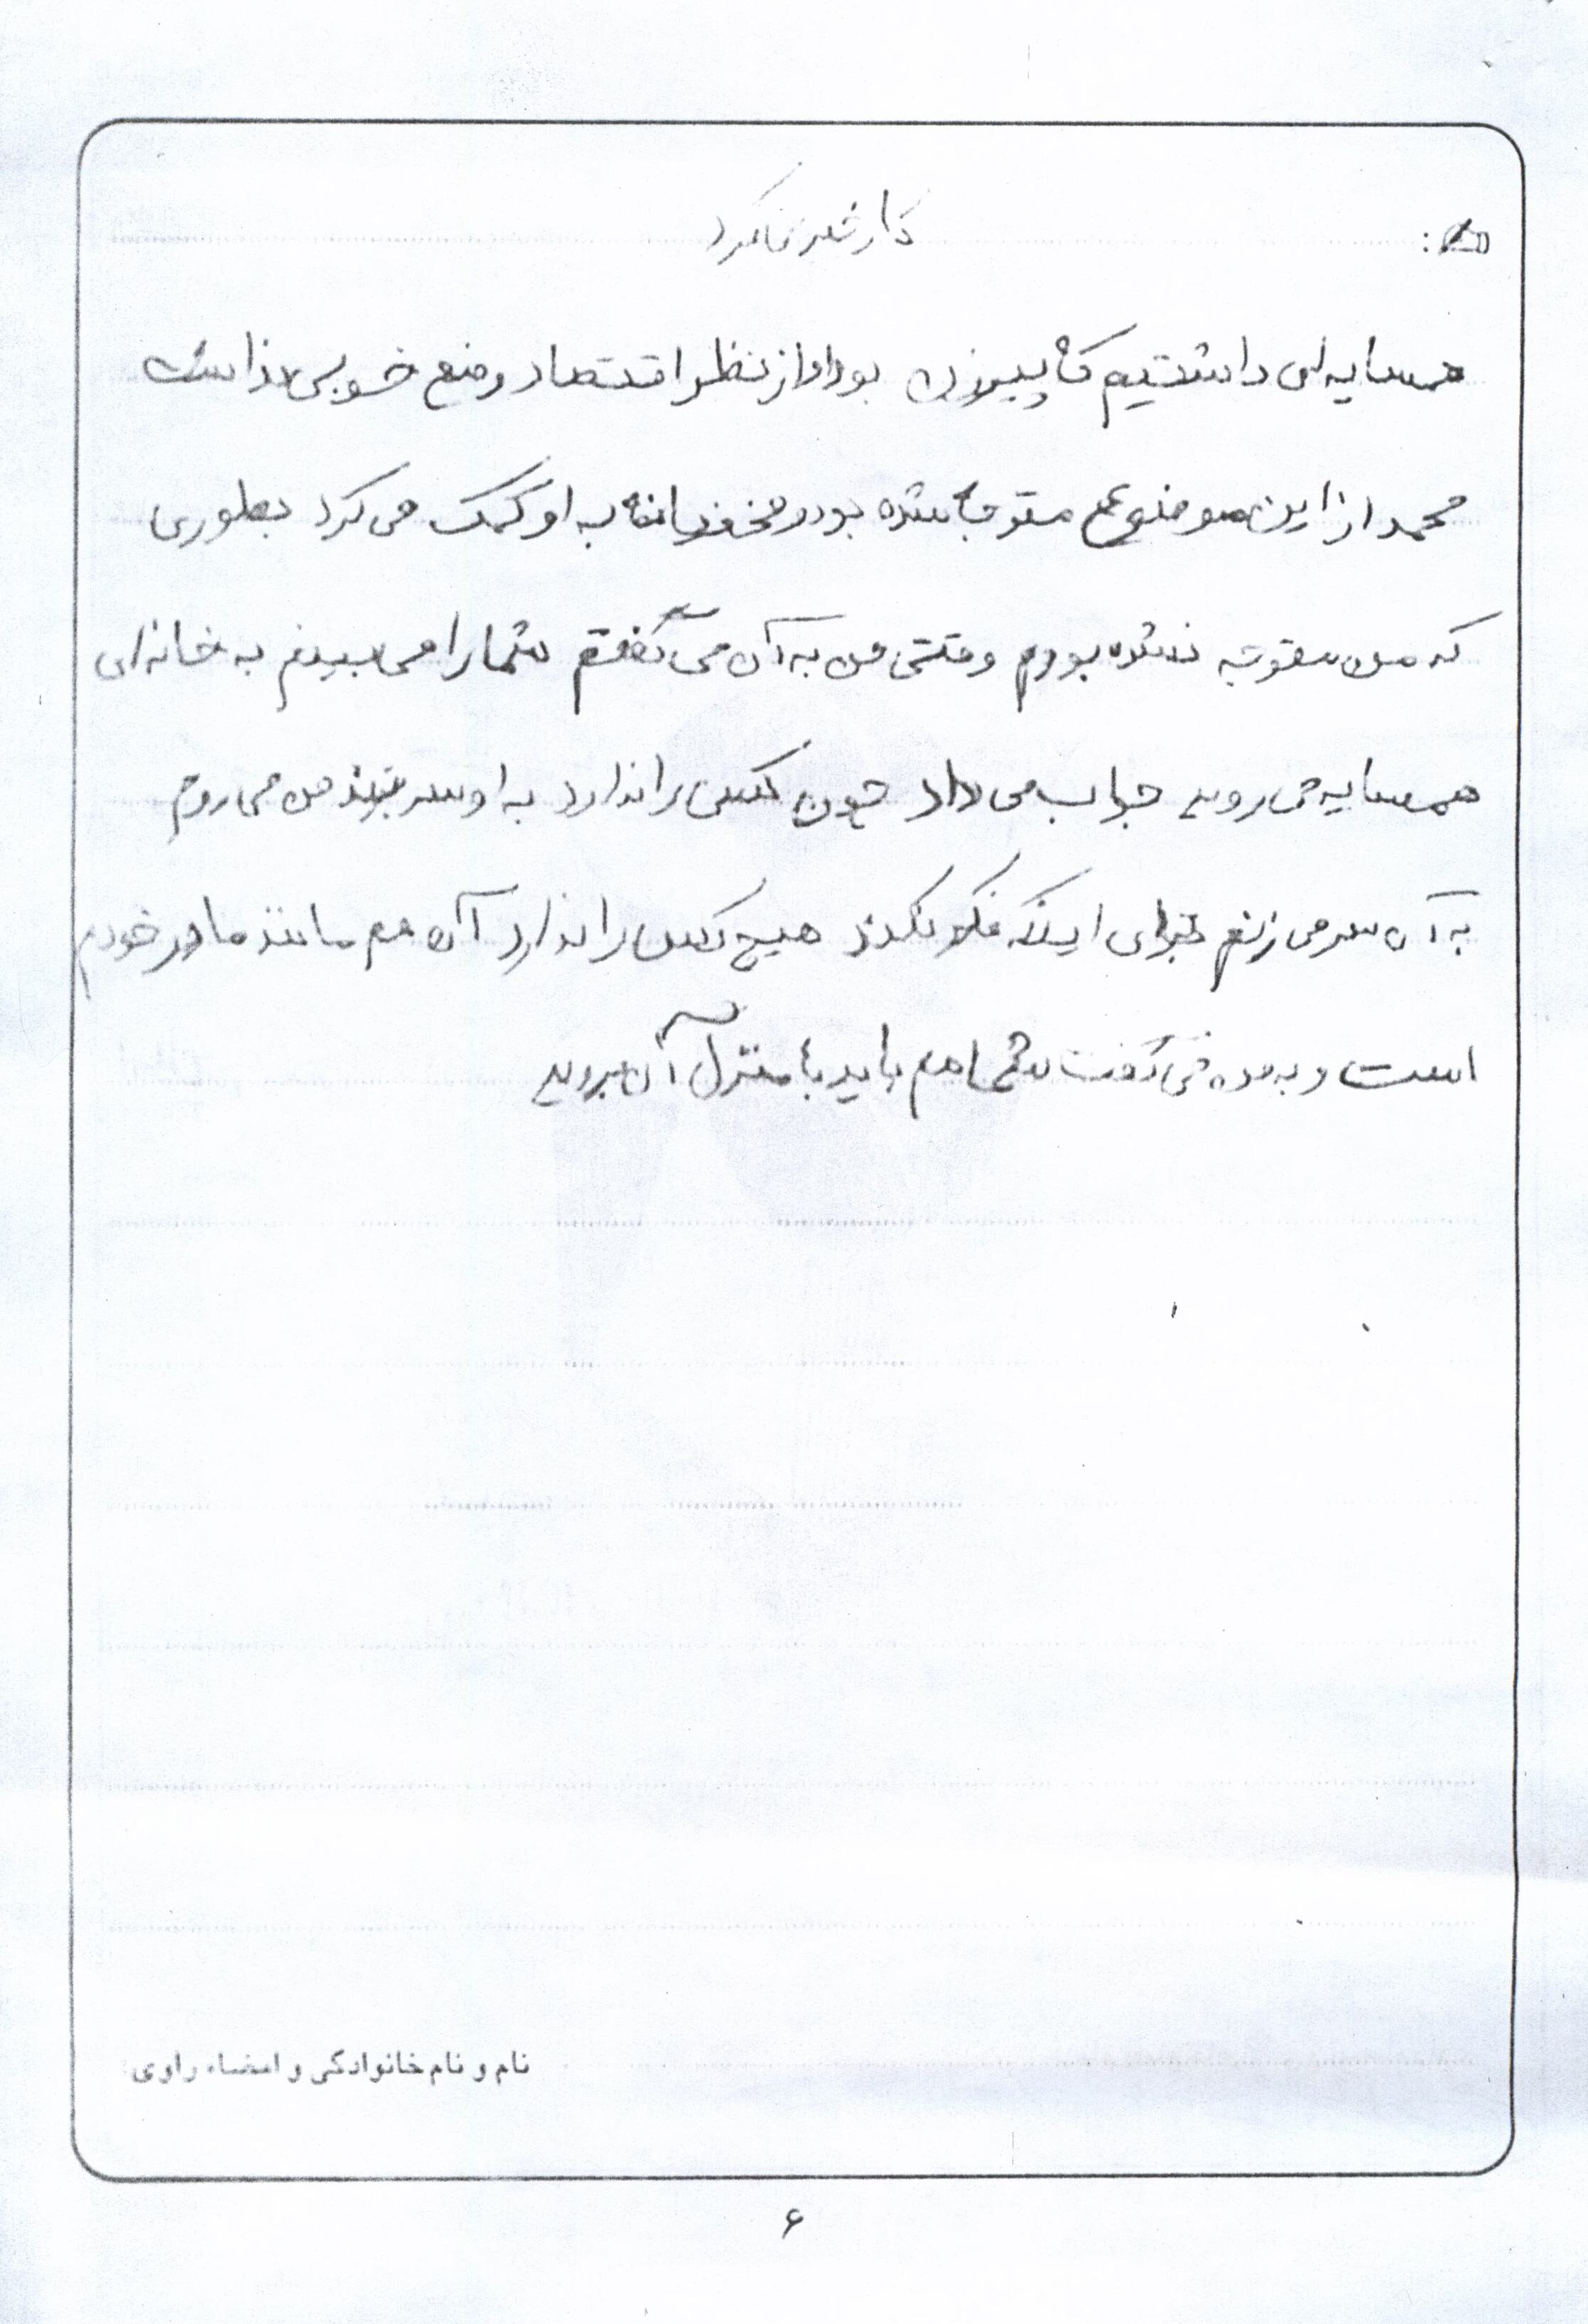 همسایه‌ای داشتیم که پیرزن بود او از نظر اقتصاد وضع خوبی نداشت
محمد از این موضوع متوجه شده بود و مخفیانه به او کمک می کرد بطوری
که من متوجه نشده بودم وقتی من به آن می گفتم شما را می بینم به خانه ای
همسایه می روید جواب می داد چون کسی را ندارد به او سر بزند من می روم
به آن سر می زنم برای اینکه فکر نکند هیچ کس را ندارد آن هم مانند مادر خودم
است و به من می گفت شما هم باید با منزل آن بروید
نام و نام خانوادگی و امضاء راوی:
۶